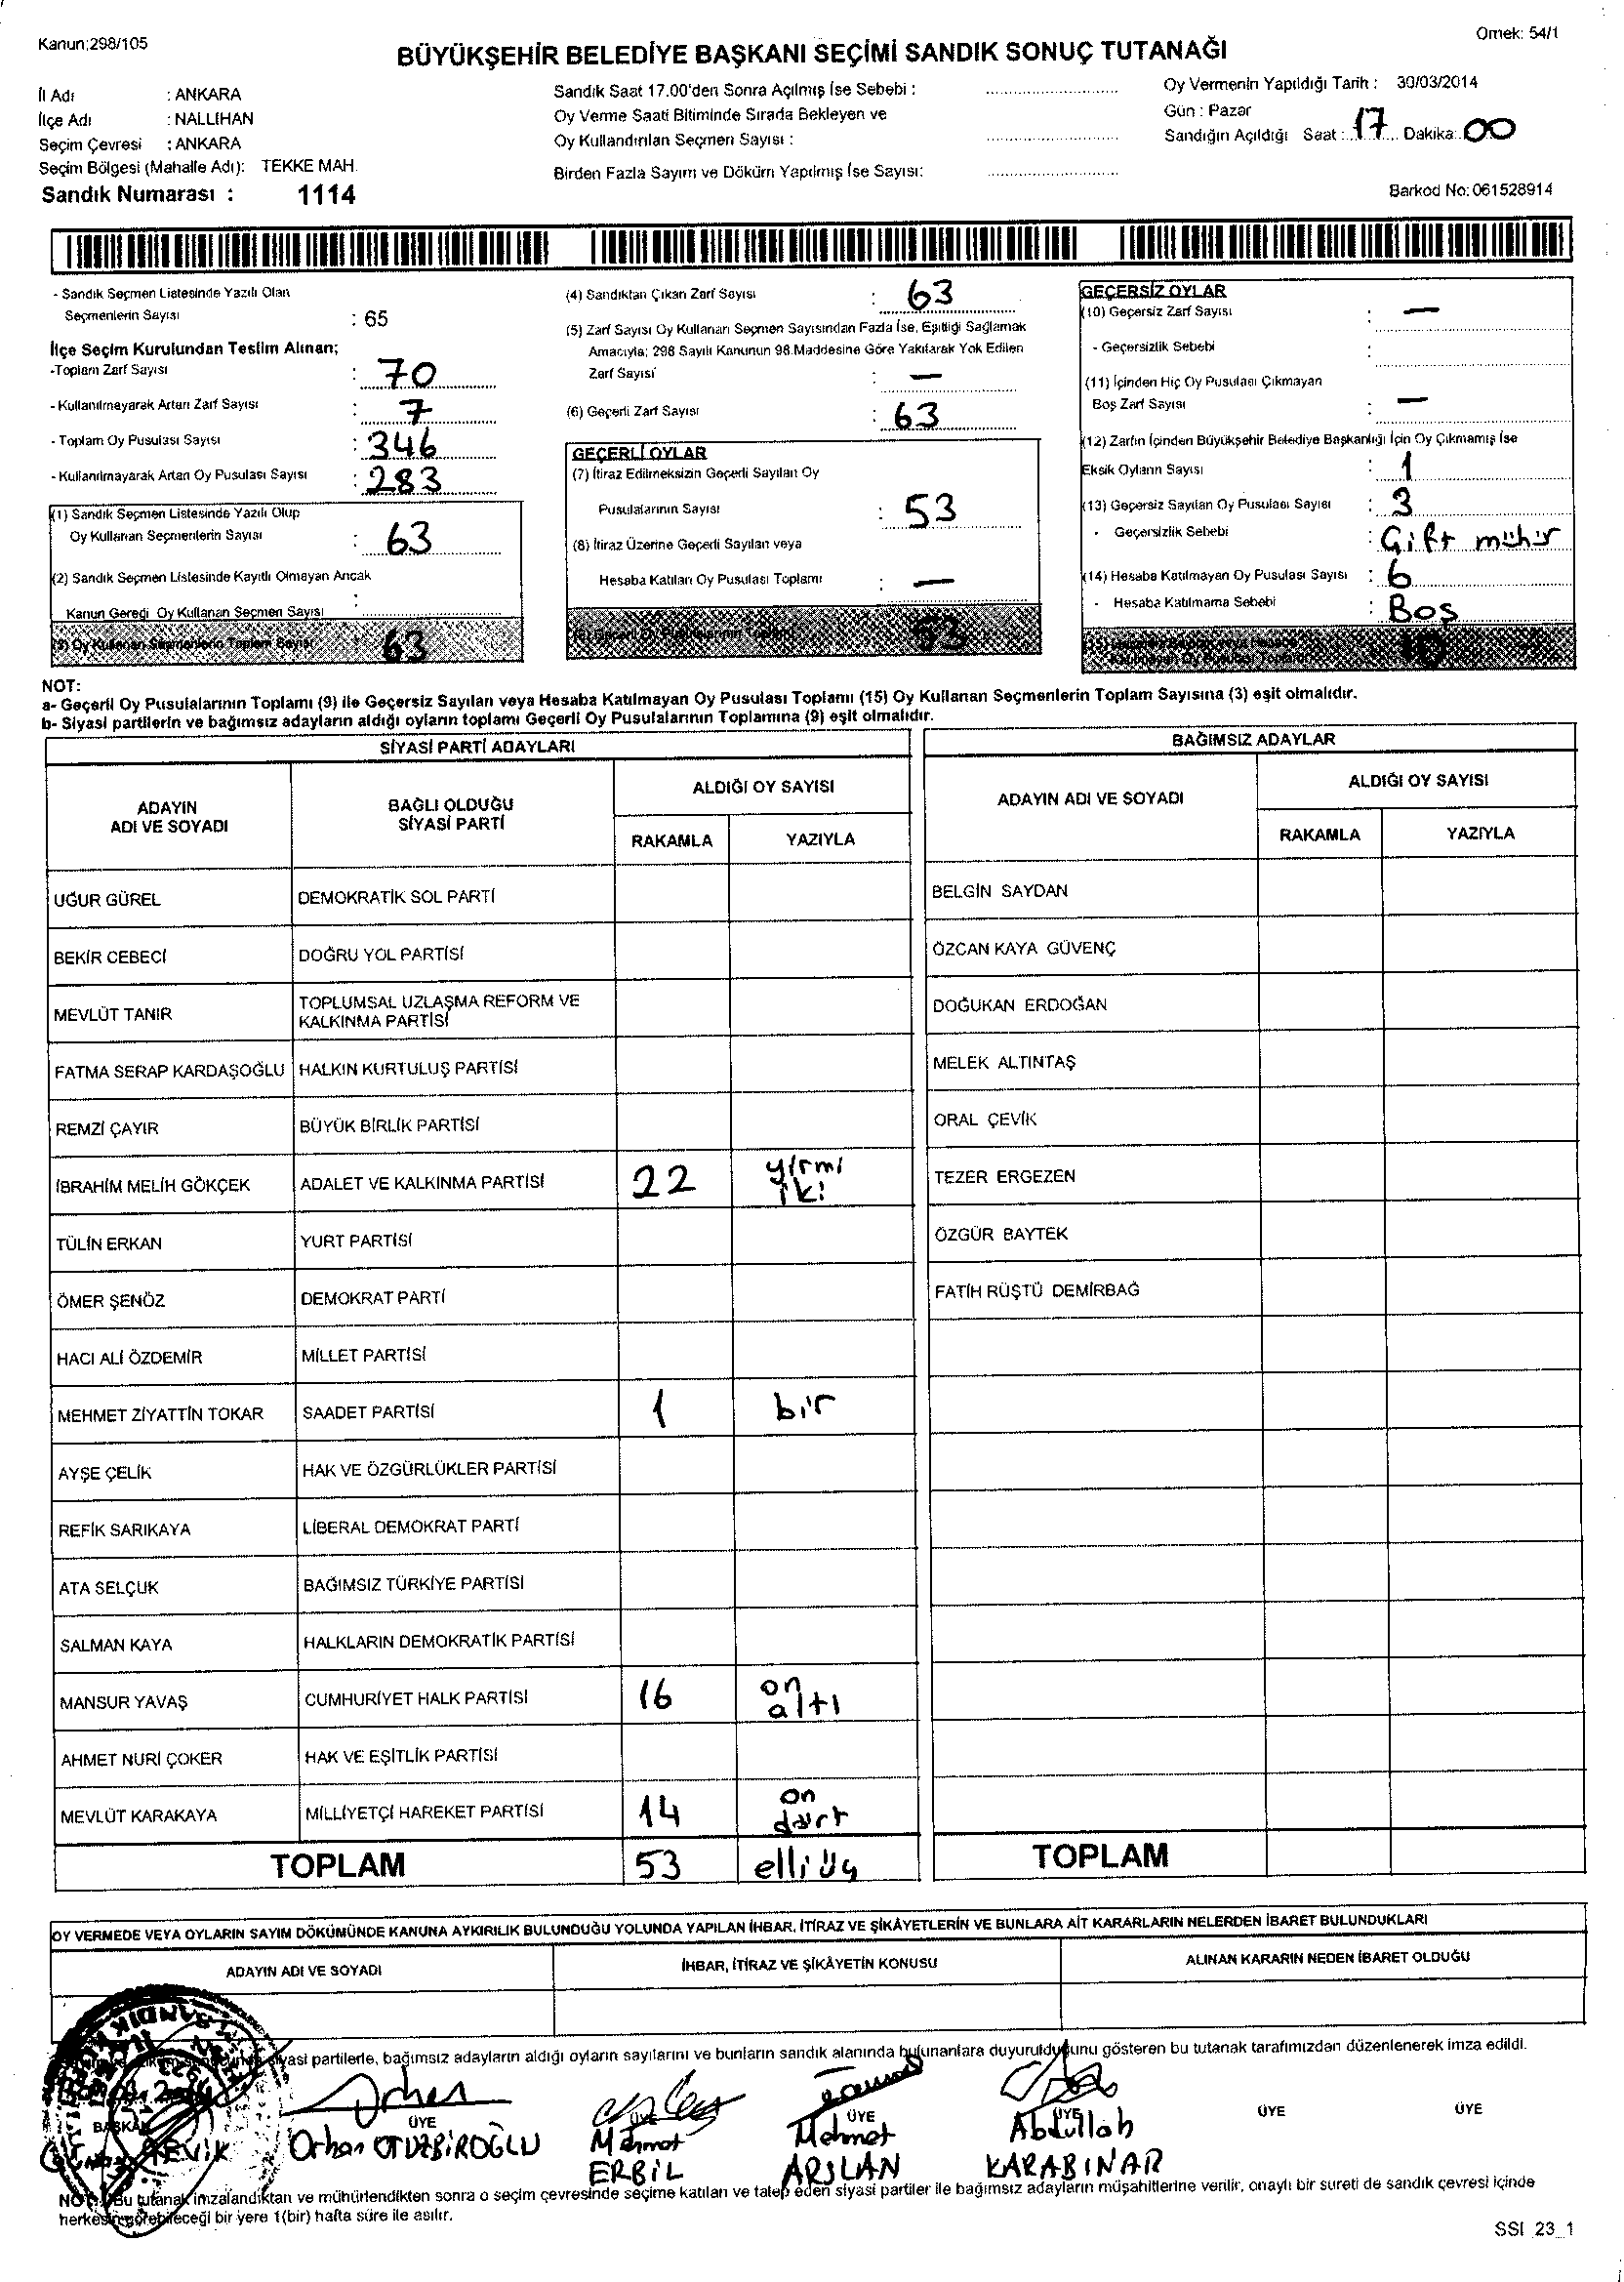 Kanun;298/105
Örnek: 54/1
BÜYÜKŞEHİR BELEDİYE BAŞKANI SEÇİMİ SANDIK SONUÇ TUTANAĞI
İl Adı : ANKARA
İlçe Adı : NALLIHAN
Seçim Çevresi : ANKARA
Seçim Bölgesi (Mahalle Adı): TEKKE MAH.
Sandık Numarası : 1114
Sandık Saat 17.00'den Sonra Açılmış İse Sebebi :
Oy Verme Saati Bitiminde Sırada Bekleyen ve
Oy Kullandırılan Seçmen Sayısı :
Birden Fazla Sayım ve Döküm Yapılmış İse Sayısı:
Oy Vermenin Yapıldığı Tarih : 30/03/2014
Gün : Pazar
Sandığın Açıldığı Saat : 17 Dakika: 00
Barkod No: 061528914
- Sandık Seçmen Listesinde Yazılı Olan
Seçmenlerin Sayısı : 65
İlçe Seçim Kurulundan Teslim Alınan;
-Toplam Zarf Sayısı : 70
- Kullanılmayarak Artan Zarf Sayısı : 7
- Toplam Oy Pusulası Sayısı : 346
- Kullanılmayarak Artan Oy Pusulası Sayısı : 283
(1) Sandık Seçmen Listesinde Yazılı Olup
Oy Kullanan Seçmenlerin Sayısı : 63
(2) Sandık Seçmen Listesinde Kayıtlı Olmayan Ancak
Kanun Gereği Oy Kullanan Seçmen Sayısı :
(3) Oy Kullanan Seçmenlerin Toplam Sayısı 63
(4) Sandıktan Çıkan Zarf Sayısı : 63
(5) Zarf Sayısı Oy Kullanan Seçmen Sayısından Fazla İse, Eşitliği Sağlamak
Amacıyla; 298 Sayılı Kanunun 98.Maddesine Göre Yakılarak Yok Edilen
Zarf Sayısı : —
(6) Geçerli Zarf Sayısı : 63
GEÇERLİ OYLAR
(7) İtiraz Edilmeksizin Geçerli Sayılan Oy
Pusulalarının Sayısı : 53
(8) İtiraz Üzerine Geçerli Sayılan veya
Hesaba Katılan Oy Pusulası Toplamı : —
Geçerli Oy Pusulalarının Toplamı 53
GEÇERSİZ OYLAR
(10) Geçersiz Zarf Sayısı : —
- Geçersizlik Sebebi :
(11) İçinden Hiç Oy Pusulası Çıkmayan
Boş Zarf Sayısı : —
(12) Zarfın İçinden Büyükşehir Belediye Başkanlığı İçin Oy Çıkmamış İse
Eksik Oyların Sayısı : 1
(13) Geçersiz Sayılan Oy Pusulası Sayısı : 3
- Geçersizlik Sebebi : Çift mühür
(14) Hesaba Katılmayan Oy Pusulası Sayısı : 6
- Hesaba Katılmama Sebebi : Boş
10
NOT:
a- Geçerli Oy Pusulalarının Toplamı (9) ile Geçersiz Sayılan veya Hesaba Katılmayan Oy Pusulası Toplamı (15) Oy Kullanan Seçmenlerin Toplam Sayısına (3) eşit olmalıdır.
b- Siyasi partilerin ve bağımsız adayların aldığı oyların toplamı Geçerli Oy Pusulalarının Toplamına (9) eşit olmalıdır.
SİYASİ PARTİ ADAYLARI
ADAYIN ADI VE SOYADI
BAĞLI OLDUĞU SİYASİ PARTİ
ALDIĞI OY SAYISI
RAKAMLA YAZIYLA
UĞUR GÜREL DEMOKRATİK SOL PARTİ
BEKİR CEBECİ DOĞRU YOL PARTİSİ
MEVLÜT TANIR TOPLUMSAL UZLAŞMA REFORM VE
KALKINMA PARTİSİ
FATMA SERAP KARDAŞOĞLU HALKIN KURTULUŞ PARTİSİ
REMZİ ÇAYIR BÜYÜK BİRLİK PARTİSİ
İBRAHİM MELİH GÖKÇEK ADALET VE KALKINMA PARTİSİ 22 yirmi iki
TÜLİN ERKAN YURT PARTİSİ
ÖMER ŞENÖZ DEMOKRAT PARTİ
HACI ALİ ÖZDEMİR MİLLET PARTİSİ
MEHMET ZİYATTİN TOKAR SAADET PARTİSİ 1 bir
AYŞE ÇELİK HAK VE ÖZGÜRLÜKLER PARTİSİ
REFİK SARIKAYA LİBERAL DEMOKRAT PARTİ
ATA SELÇUK BAĞIMSIZ TÜRKİYE PARTİSİ
SALMAN KAYA HALKLARIN DEMOKRATİK PARTİSİ
MANSUR YAVAŞ CUMHURİYET HALK PARTİSİ 16 on altı
AHMET NURİ ÇOKER HAK VE EŞİTLİK PARTİSİ
MEVLÜT KARAKAYA MİLLİYETÇİ HAREKET PARTİSİ 14 on dört
TOPLAM 53 elli üç
BAĞIMSIZ ADAYLAR
ADAYIN ADI VE SOYADI
ALDIĞI OY SAYISI
RAKAMLA YAZIYLA
BELGİN SAYDAN
ÖZCAN KAYA GÜVENÇ
DOĞUKAN ERDOĞAN
MELEK ALTINTAŞ
ORAL ÇEVİK
TEZER ERGEZEN
ÖZGÜR BAYTEK
FATİH RÜŞTÜ DEMİRBAĞ
TOPLAM
OY VERMEDE VEYA OYLARIN SAYIM DÖKÜMÜNDE KANUNA AYKIRILIK BULUNDUĞU YOLUNDA YAPILAN İHBAR, İTİRAZ VE ŞİKÂYETLERİN VE BUNLARA AİT KARARLARIN NELERDEN İBARET BULUNDUKLARI
ADAYIN ADI VE SOYADI İHBAR, İTİRAZ VE ŞİKÂYETİN KONUSU ALINAN KARARIN NEDEN İBARET OLDUĞU
siyasi partilerle, bağımsız adayların aldığı oyların sayılarını ve bunların sandık alanında bulunanlara duyurulduğunu gösteren bu tutanak tarafımızdan düzenlenerek imza edildi.
BAŞKAN ÜYE ÜYE ÜYE ÜYE ÜYE ÜYE
ÇEVİK Orhan OTUZBİROĞLU Mehmet ERBİL Mehmet ARSLAN Abdullah KARABINAR
NOT: Bu tutanak imzalandıktan ve mühürlendikten sonra o seçim çevresinde seçime katılan ve talep eden siyasi partiler ile bağımsız adayların müşahitlerine verilir, onaylı bir sureti de sandık çevresi içinde
herkesin görebileceği bir yere 1(bir) hafta süre ile asılır.
SSI_23_1